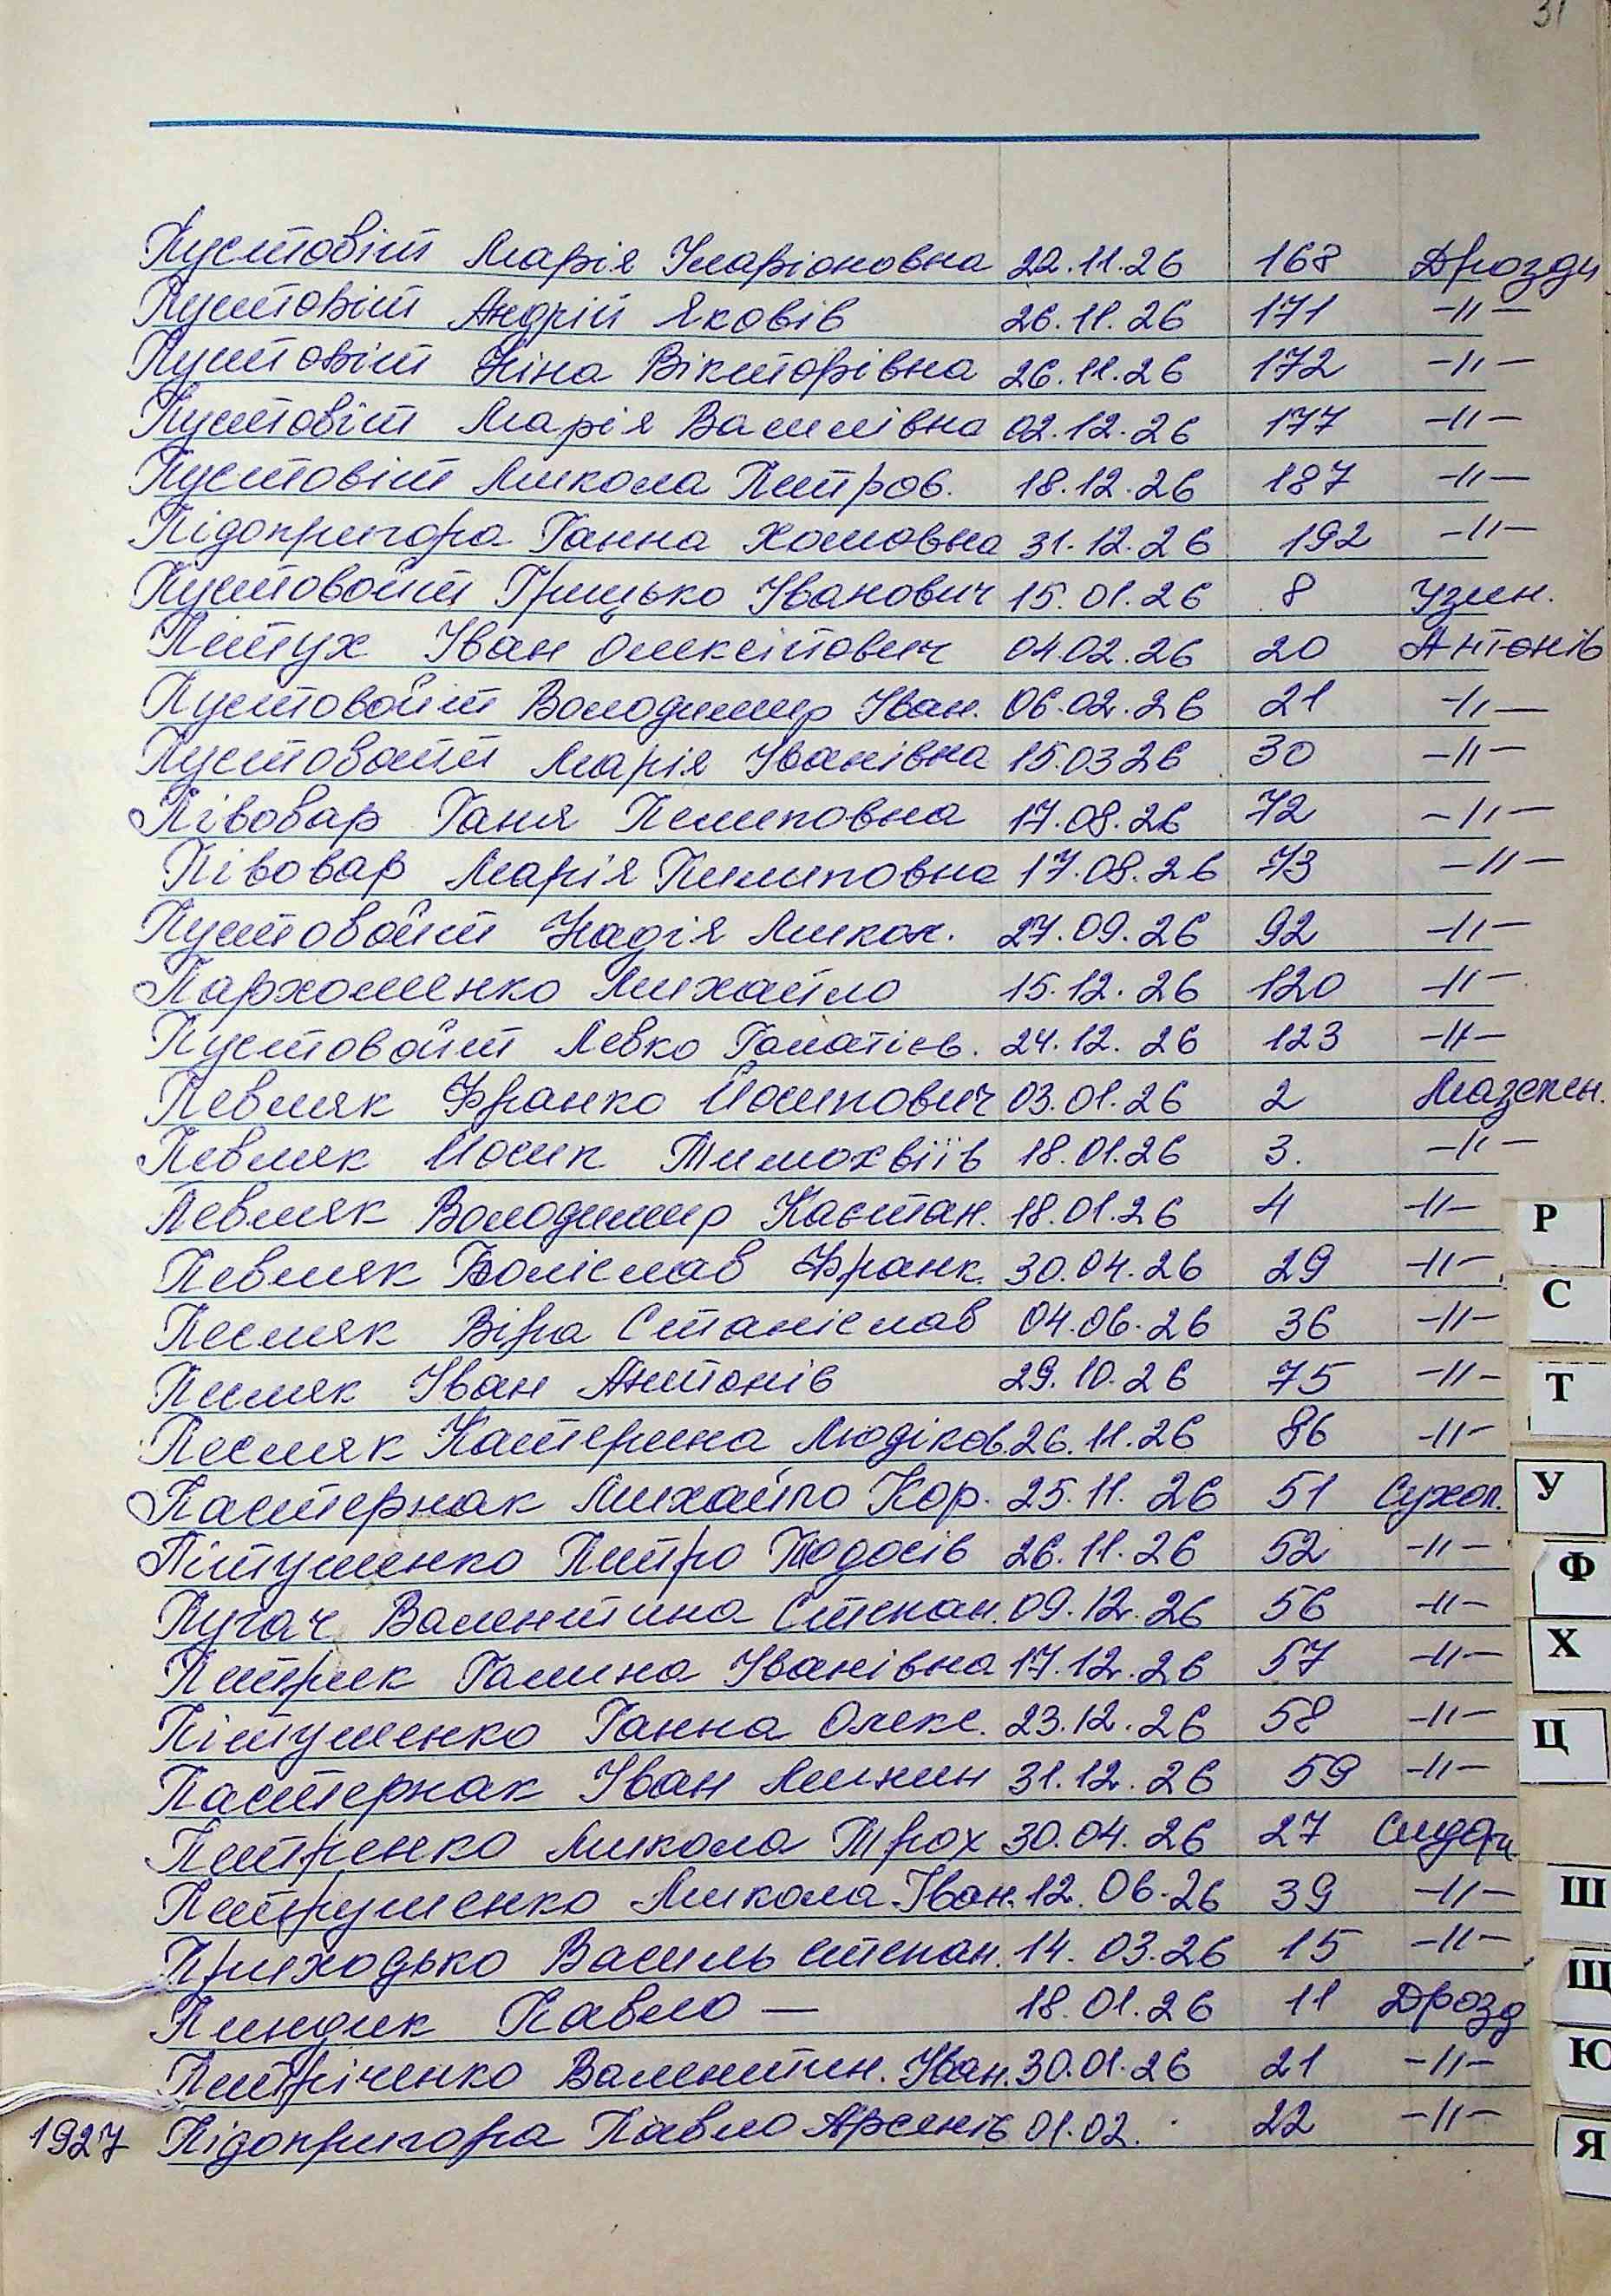 31
Пустовіт Марія Іларіоновна 22.11.26 168 Дрозди
Пустовіт Андрій Яковів 26.11.26 171 -//-
Пустовіт Ніна Вікторівна 26.11.26 172 -//-
Пустовіт Марія Василівна 02.12.26 177 -//-
Пустовіт Микола Петров. 18.12.26 187 -//-
Підопригора Ганна Хомовна 31.12.26 192 -//-
Пустовойт Грицько Іванович 15.01.26 8 Узин.
Петух Іван Олексійович 04.02.26 20 Антонів
Пустовойт Володимир Іван. 06.02.26 21 -//-
Пустовойт Марія Іванівна 15.03 26 30 -//-
Півовар Ганя Пелиповна 17.08.26 72 -//-
Півовар Марія Пилиповна 17.08.26 73 -//-
Пустовойт Надія Микол. 27.09.26 92 -//-
Пархоменко Михайло 15.12.26 120 -//-
Пустовойт Левко Гнатієв. 24.12.26 123 -//-
Певмяк Франко Йосипович 03.01.26 2 Мазепин.
Певмяк Йосип Тимохвіїв 18.01.26 3. -//-
Певмяк Володимир Каєтан. 18.01.26 4 -//-
Певмяк Болієлав Франк. 30.04.26 29 -//-
Песмяк Віра Станіслав 04.06.26 36 -//-
Пемяк Іван Антонів 29.10.26 75 -//-
Песмяк Катерина Людіков. 26.11.26 86 -//-
Пастернак Михайло Кор. 25.11.26 51 Сухол.
Пітушенко Петро Тодосів 26.11.26 52 -//-
Пугач Валентина Степан. 09.12.26 56 -//-
Петрик Галина Іванівна 17.12.26 57 -//-
Пітушенко Ганна Олекс. 23.12.26 58 -//-
Пастернак Іван 31.12.26 59 -//-
Петренко Микола Трох 30.04.26 27 Сидори
Петрушенко Микола Іван. 12.06.26 39 -//-
Приходько Василь Степан. 14.03.26 15 -//-
Пиндик Павло — 18.01.26 11 Дрозд
Петріченко Валентин. Іван. 30.01.26 21 -//-
1927 Підопригора Павло Арсенів 01.02. 22 -//-
Р
С
Т
У
Ф
Х
Ц
Ш
Щ
Ю
Я